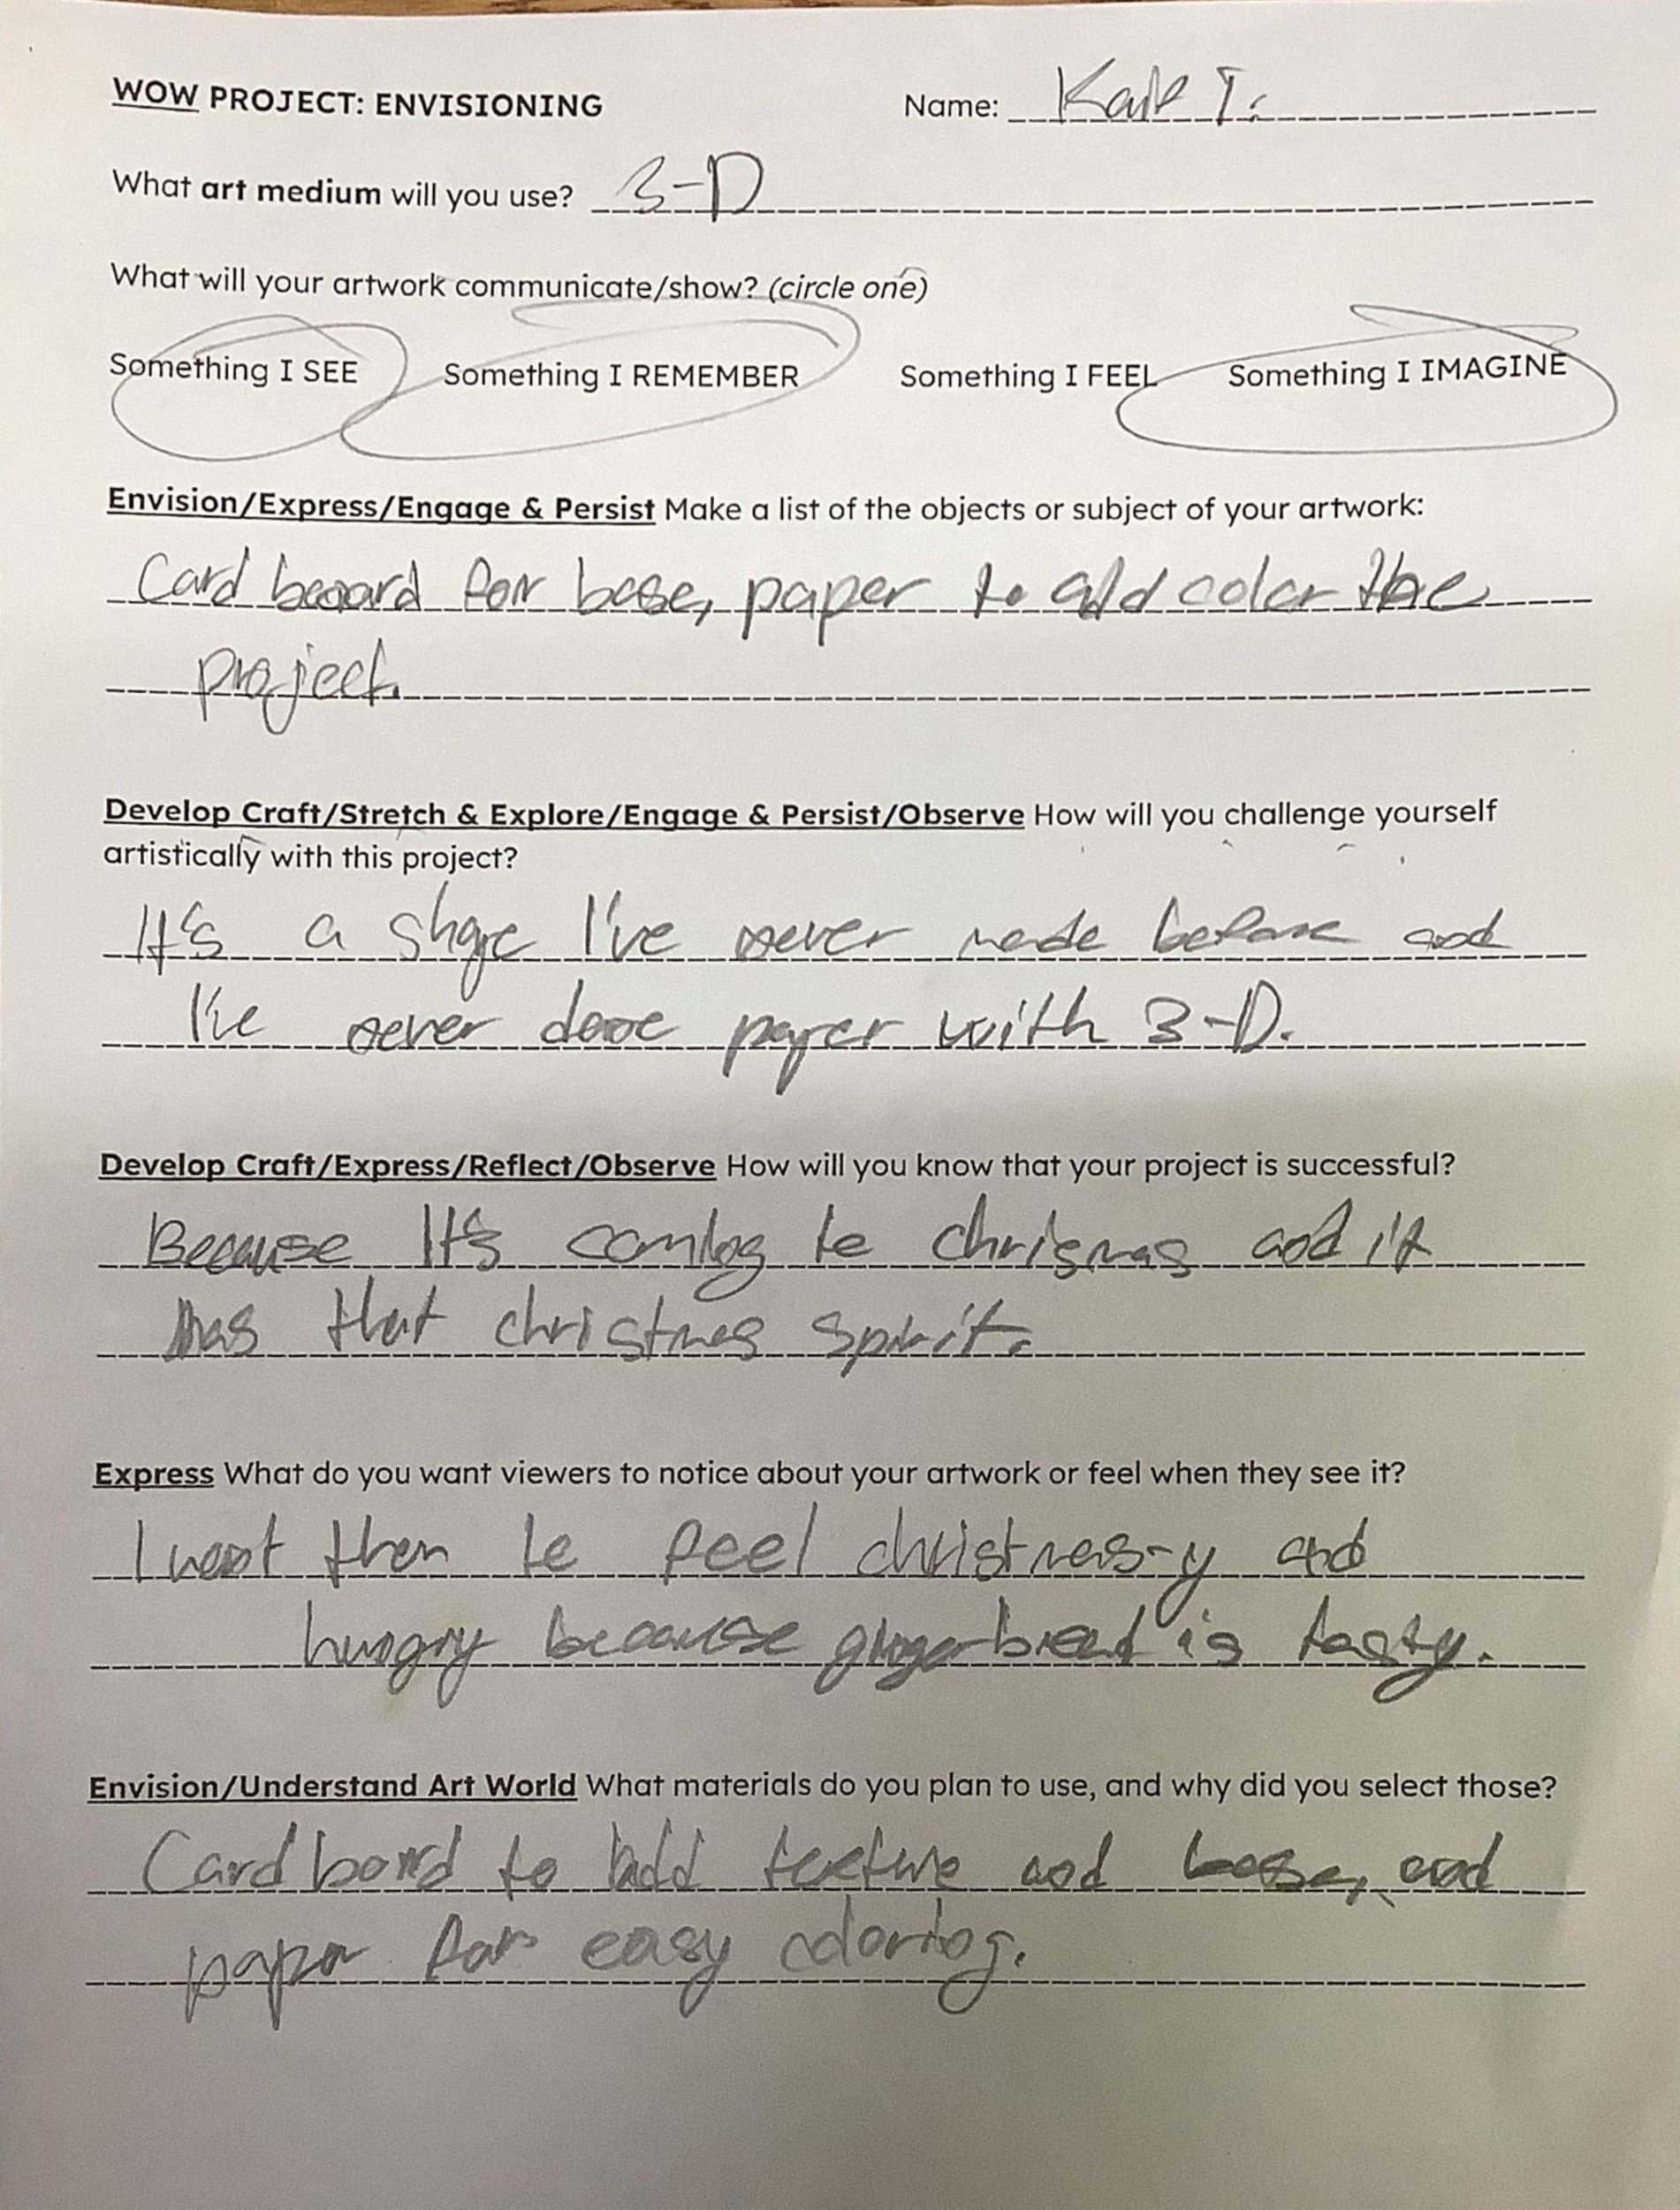 WOW PROJECT: ENVISIONING Name: Kale T.
What art medium will you use? 3-D
What will your artwork communicate/show? (circle one)
Something I SEE Something I REMEMBER Something I FEEL Something I IMAGINE
Envision/Express/Engage & Persist Make a list of the objects or subject of your artwork:
Card beoard for base, paper to add color the
project.
Develop Craft/Stretch & Explore/Engage & Persist/Observe How will you challenge yourself
artistically with this project?
It's a shape I've never made before and
I've never done paper with 3-D.
Develop Craft/Express/Reflect/Observe How will you know that your project is successful?
Because It's coming to chrismas and it
has that christmas spirit.
Express What do you want viewers to notice about your artwork or feel when they see it?
I want them to feel christmas-y and
hungry because gingerbread is tasty.
Envision/Understand Art World What materials do you plan to use, and why did you select those?
Card board to add texture and base, and
paper for easy coloring.